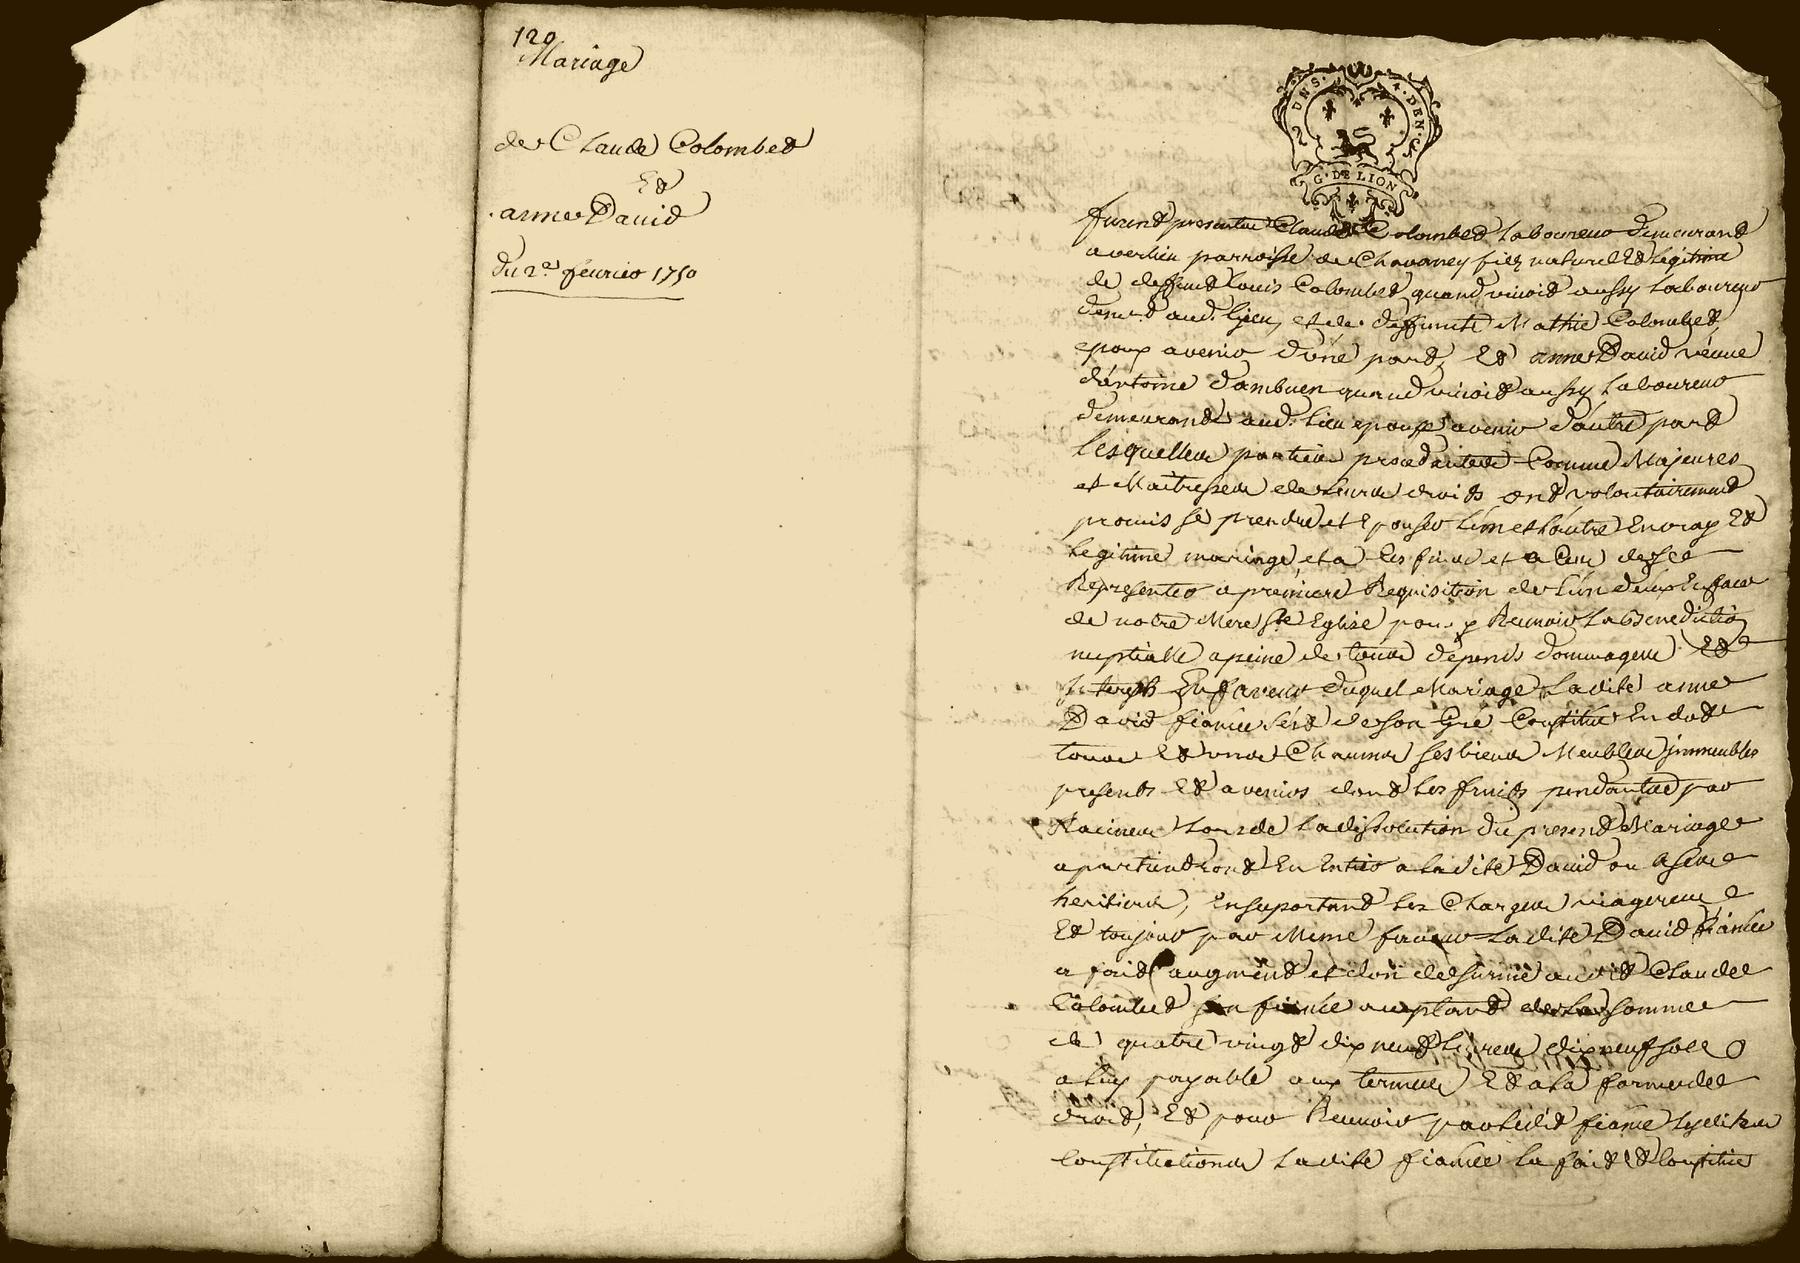 120
Mariage
de Claude Colombet
Et
anne David
du 2e fevrier 1750
2 DNS. 4. DEN.
G. DE LION
furent presents Claude Colombet laboureur demeurant
a verlieu parroisse de Chavaney fils naturel Et legitime
de deffunt Louis Colombet quand vivoit aussy laboureur
demt. aud. lieu, et de deffunte Mathie Colombet,
epoux avenir d'une part, Et anne David veuve
d'antoine quand vivoit aussy laboureur
demeurante aud. lieu epouse avenir d'autre part
Lesquelles parties procedantes Comme Majeures
et Maitresses de leurs droits ont volontairement
promis se prendre et Epouser l'un et l'autre En vray Et
legitime mariage et a ces fins et de se
Representer a premiere Requisition de l'un d'eux En face
de notre Mere Ste Eglise pour y Recevoir La Benediction
nuptialle a peine de tous depends dommages Et
Interest En faveur duquel Mariage Ladite anne
David fiancée s'est de son Gré Constitué En dotte
tous Et uns Chacuns ses biens Meubles immeubles
presents Et avenirs dont Les fruits pendants par
Racines Lors de La dissolution du present Mariage
apartiendront En Entier a ladite David ou a ses
heritiers, En suportant les Charges viageres
Et toujours par Meme faveur Ladite David fiancée
a fait augment et don de survie audit Claude
Colombet son fiancé acceptant de la somme
de quatre vingt dix neuf Livres dix neuf sols
a luy payable aux termes Et a la forme de
droit, Et pour Recevoir par ledit fiancé Lesdites
Constitutions Ladite fiancée la fait Et Constitue